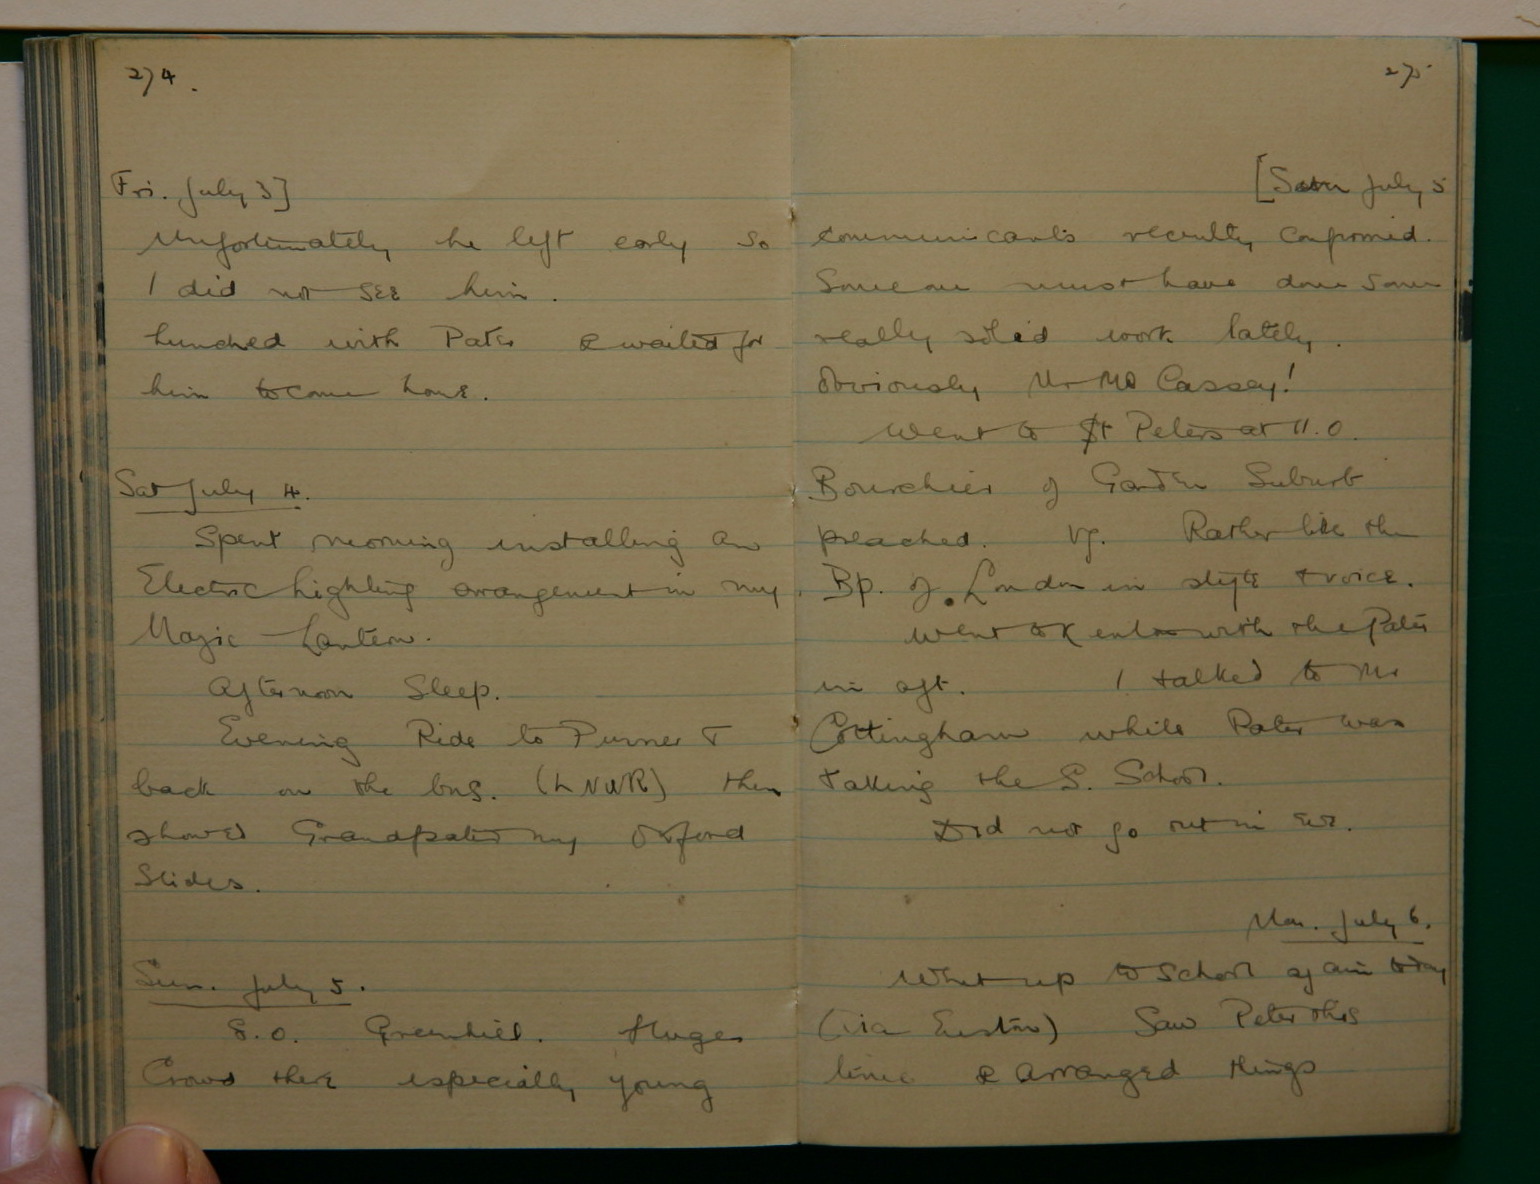 274.
Fri. July 3]
Unfortunately he left early so
I did not see him.
Lunched with Pater & waited for
him to come home.
Sat July 4.
Spent morning installing an
Electric Lighting arrangement in my
Magic Lantern.
Afternoon Sleep.
Evening Ride to Purner &
back on the bus. (LNWR) then
showed Grandpater my Oxford
Slides.
Sun. July 5.
8.0. Greenhill. Huge
Crowd there especially young
275
[Sun July 5
communicants recently confirmed.
Someone must have done some
really solid work lately.
Obviously Mr Mc Cassey!
Went to St Peters at 11.0.
Bourchier of Garden Suburb
preached. vg. Rather like the
Bp. of London in style & voice.
Went to Kenton with the Pater
in aft. I talked to Mr
Cottingham while Pater was
taking the S. School.
Did not go out in eve.
Mon. July 6.
Went up to School again today
(via Euston) Saw Peter this
time & arranged things